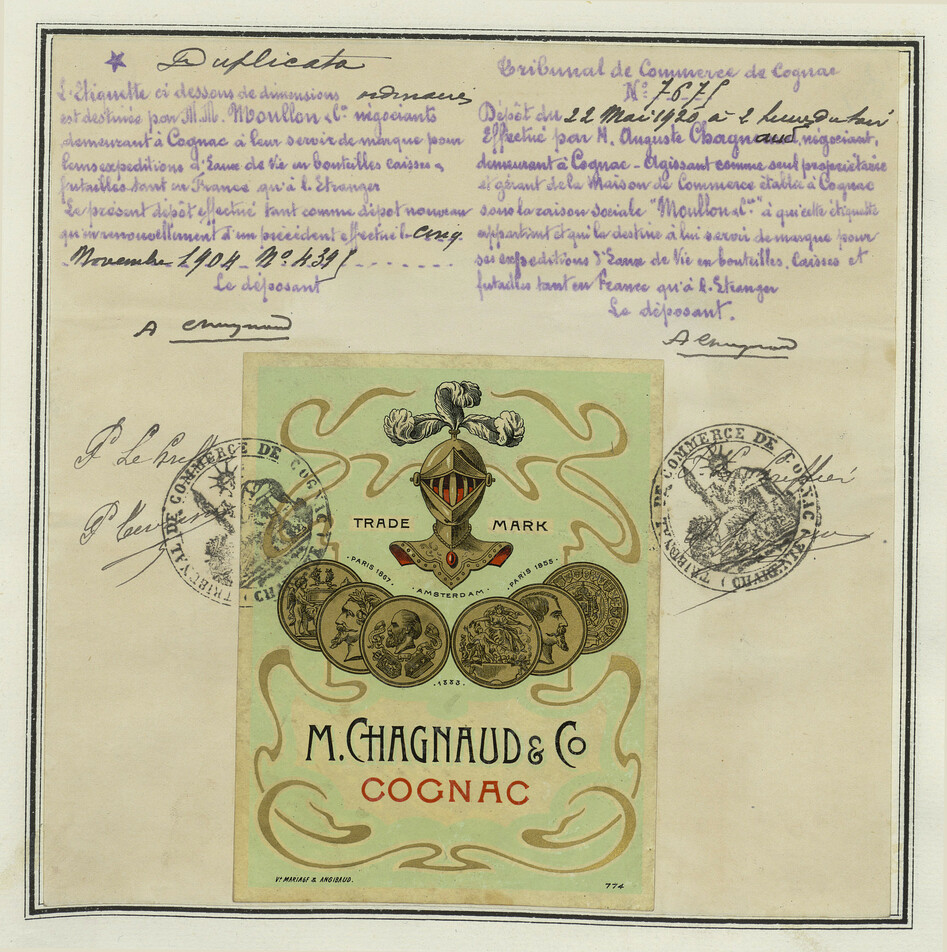 Duplicata
L'Etiquette ci dessous de dimensions ordinaires
est destinée par M.M. Moullon & Cie négociants
demeurant à Cognac à leur servir de marque pour
leurs expeditions d'Eaux de Vie en bouteilles caisses &
futailles tant en France qu'à l'Etranger
Le présent dépôt effectué tant comme dépot nouveau
qu'en renouvellement d'un précédent effectué le cinq
Novembre 1904 No 4391
Le déposant
A Chagnaud
Tribunal de Commerce de Cognac
No 7675
Dépôt du 22 Mai 1920 à 2 heures du soir
Effectué par M. Auguste Chagnaud, négociant,
demeurant à Cognac - Agissant comme seul propriétaire
et gérant de la Maison de Commerce établie à Cognac
sous la raison sociale "Moullon & Cie" à qui cette étiquette
appartient et qui la destine à lui servir de marque pour
ses expeditions d'Eaux de Vie en bouteilles, Caisses et
futailles tant en France qu'à l'Etranger
Le déposant.
A Chagnaud
P. Le Greffier
Greffier
TRIBUNAL DE COMMERCE DE COGNAC
TRIBUNAL DE COMMERCE DE COGNAC (CHARENTE)
TRADE MARK
PARIS 1867.
PARIS 1855.
AMSTERDAM
1883.
M. CHAGNAUD & CO
COGNAC
Vve MARIAGE & ANGIBAUD.
774